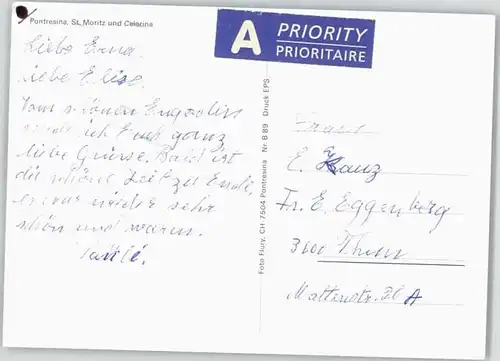 Pontresina, St. Moritz und Celerina
A PRIORITY
PRIORITAIRE
Liebe Erna.
Liebe Elise.
Vom schönen Engadin
sende ich Euch ganz
liebe Grüsse. Bald ist
die schöne Zeit zu Ende,
es war wieder sehr
schön und warm.
Foto Flury, CH 7504 Pontresina Nr. B 89 Druck EPS
Frau
E. Kanz
Fr. E. Eggenberg
3600 Thun
Mattenstr. A